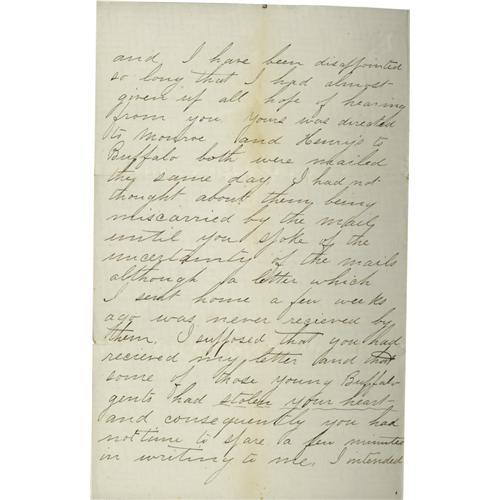 and I have been disappointed
so long that I had almost
given up all hope of hearing
from you yours was directed
to Monroe and Henrys to
Buffalo both were mailed
the same day I had not
thought about them being
miscarried by the mail
until you spoke of the
uncertainty of the mails
although a letter which
I sent home a few weeks
ago was never recieved by
them. I supposed that you had
recieved my letter and that
some of those young Buffalo
gents had stolen your heart-
and consequently you had
not time to spare a few minutes
in writing to me. I intended